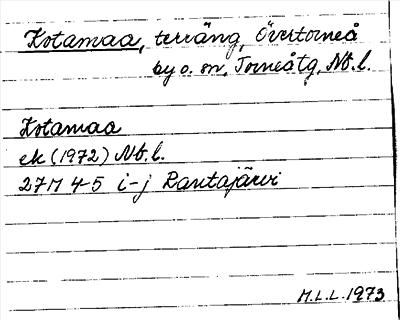 Kotamaa, terräng, Övertorneå
by o. sn, Torneåtg, Nb.l.
Kotamaa
ek (1972) Nb.l.
27M 4-5 i-j Rantajärvi
M.L.L. 1973